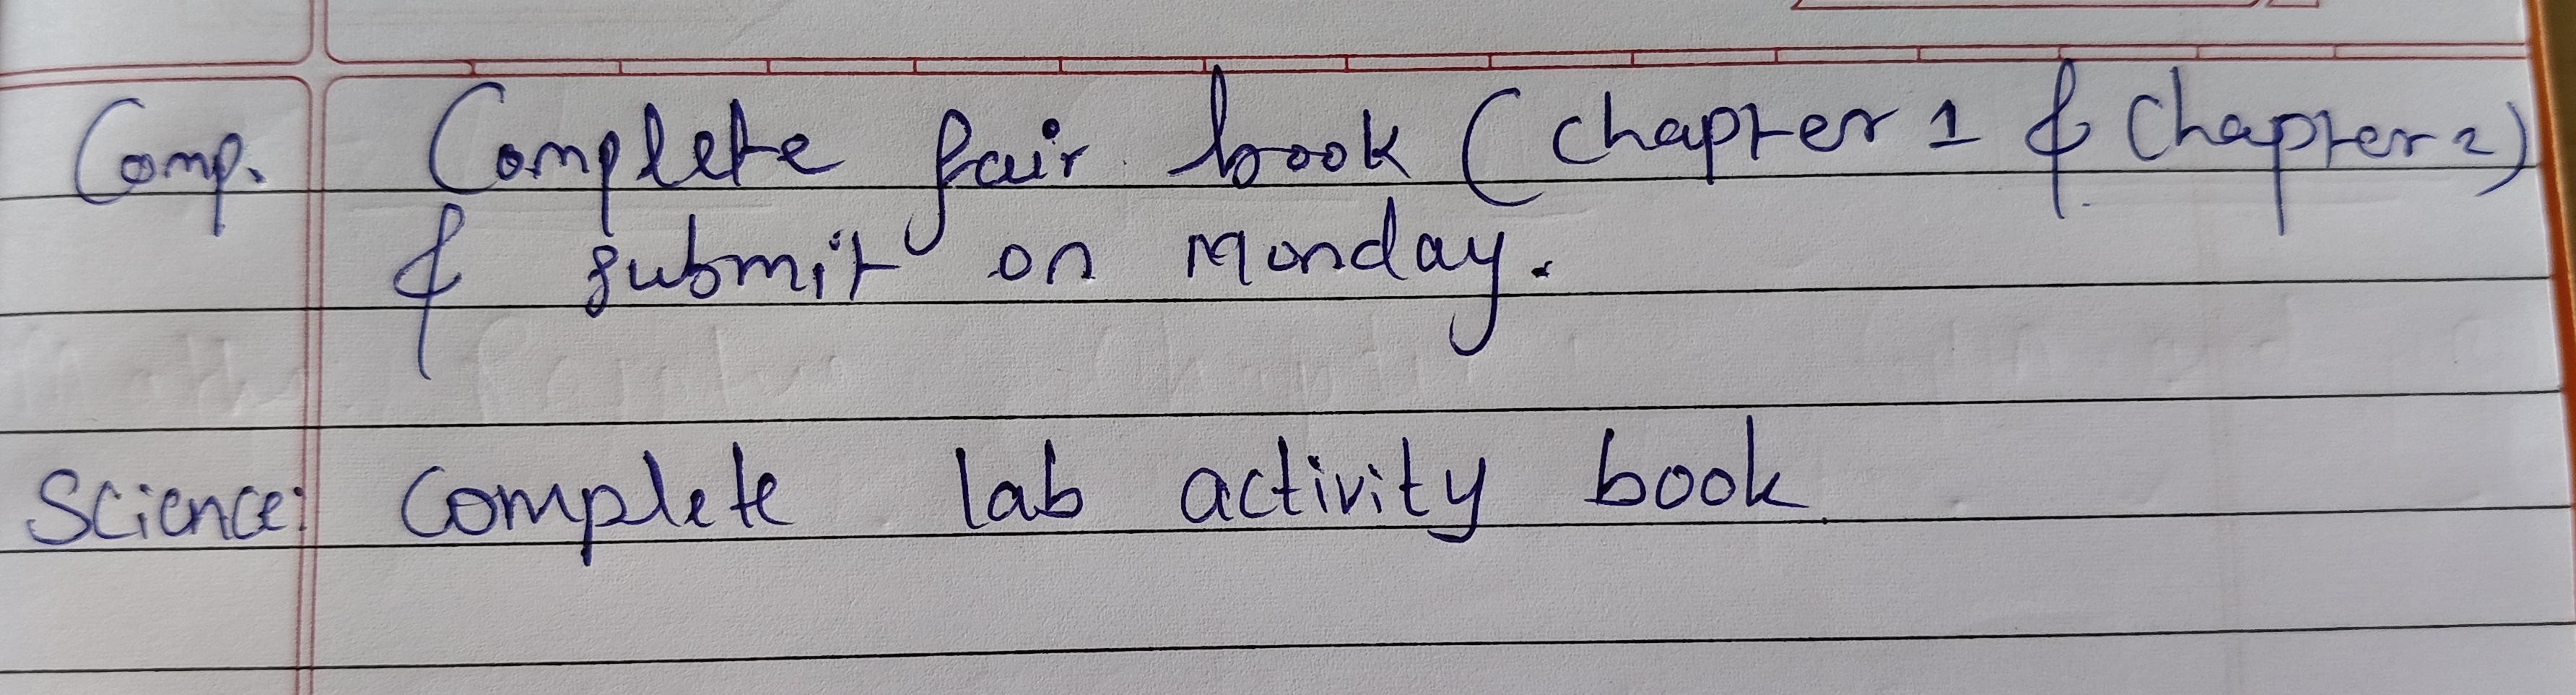 Comp. Complete fair book (chapter 1 & Chapter 2)
& submit on Monday.
Science: Complete lab activity book